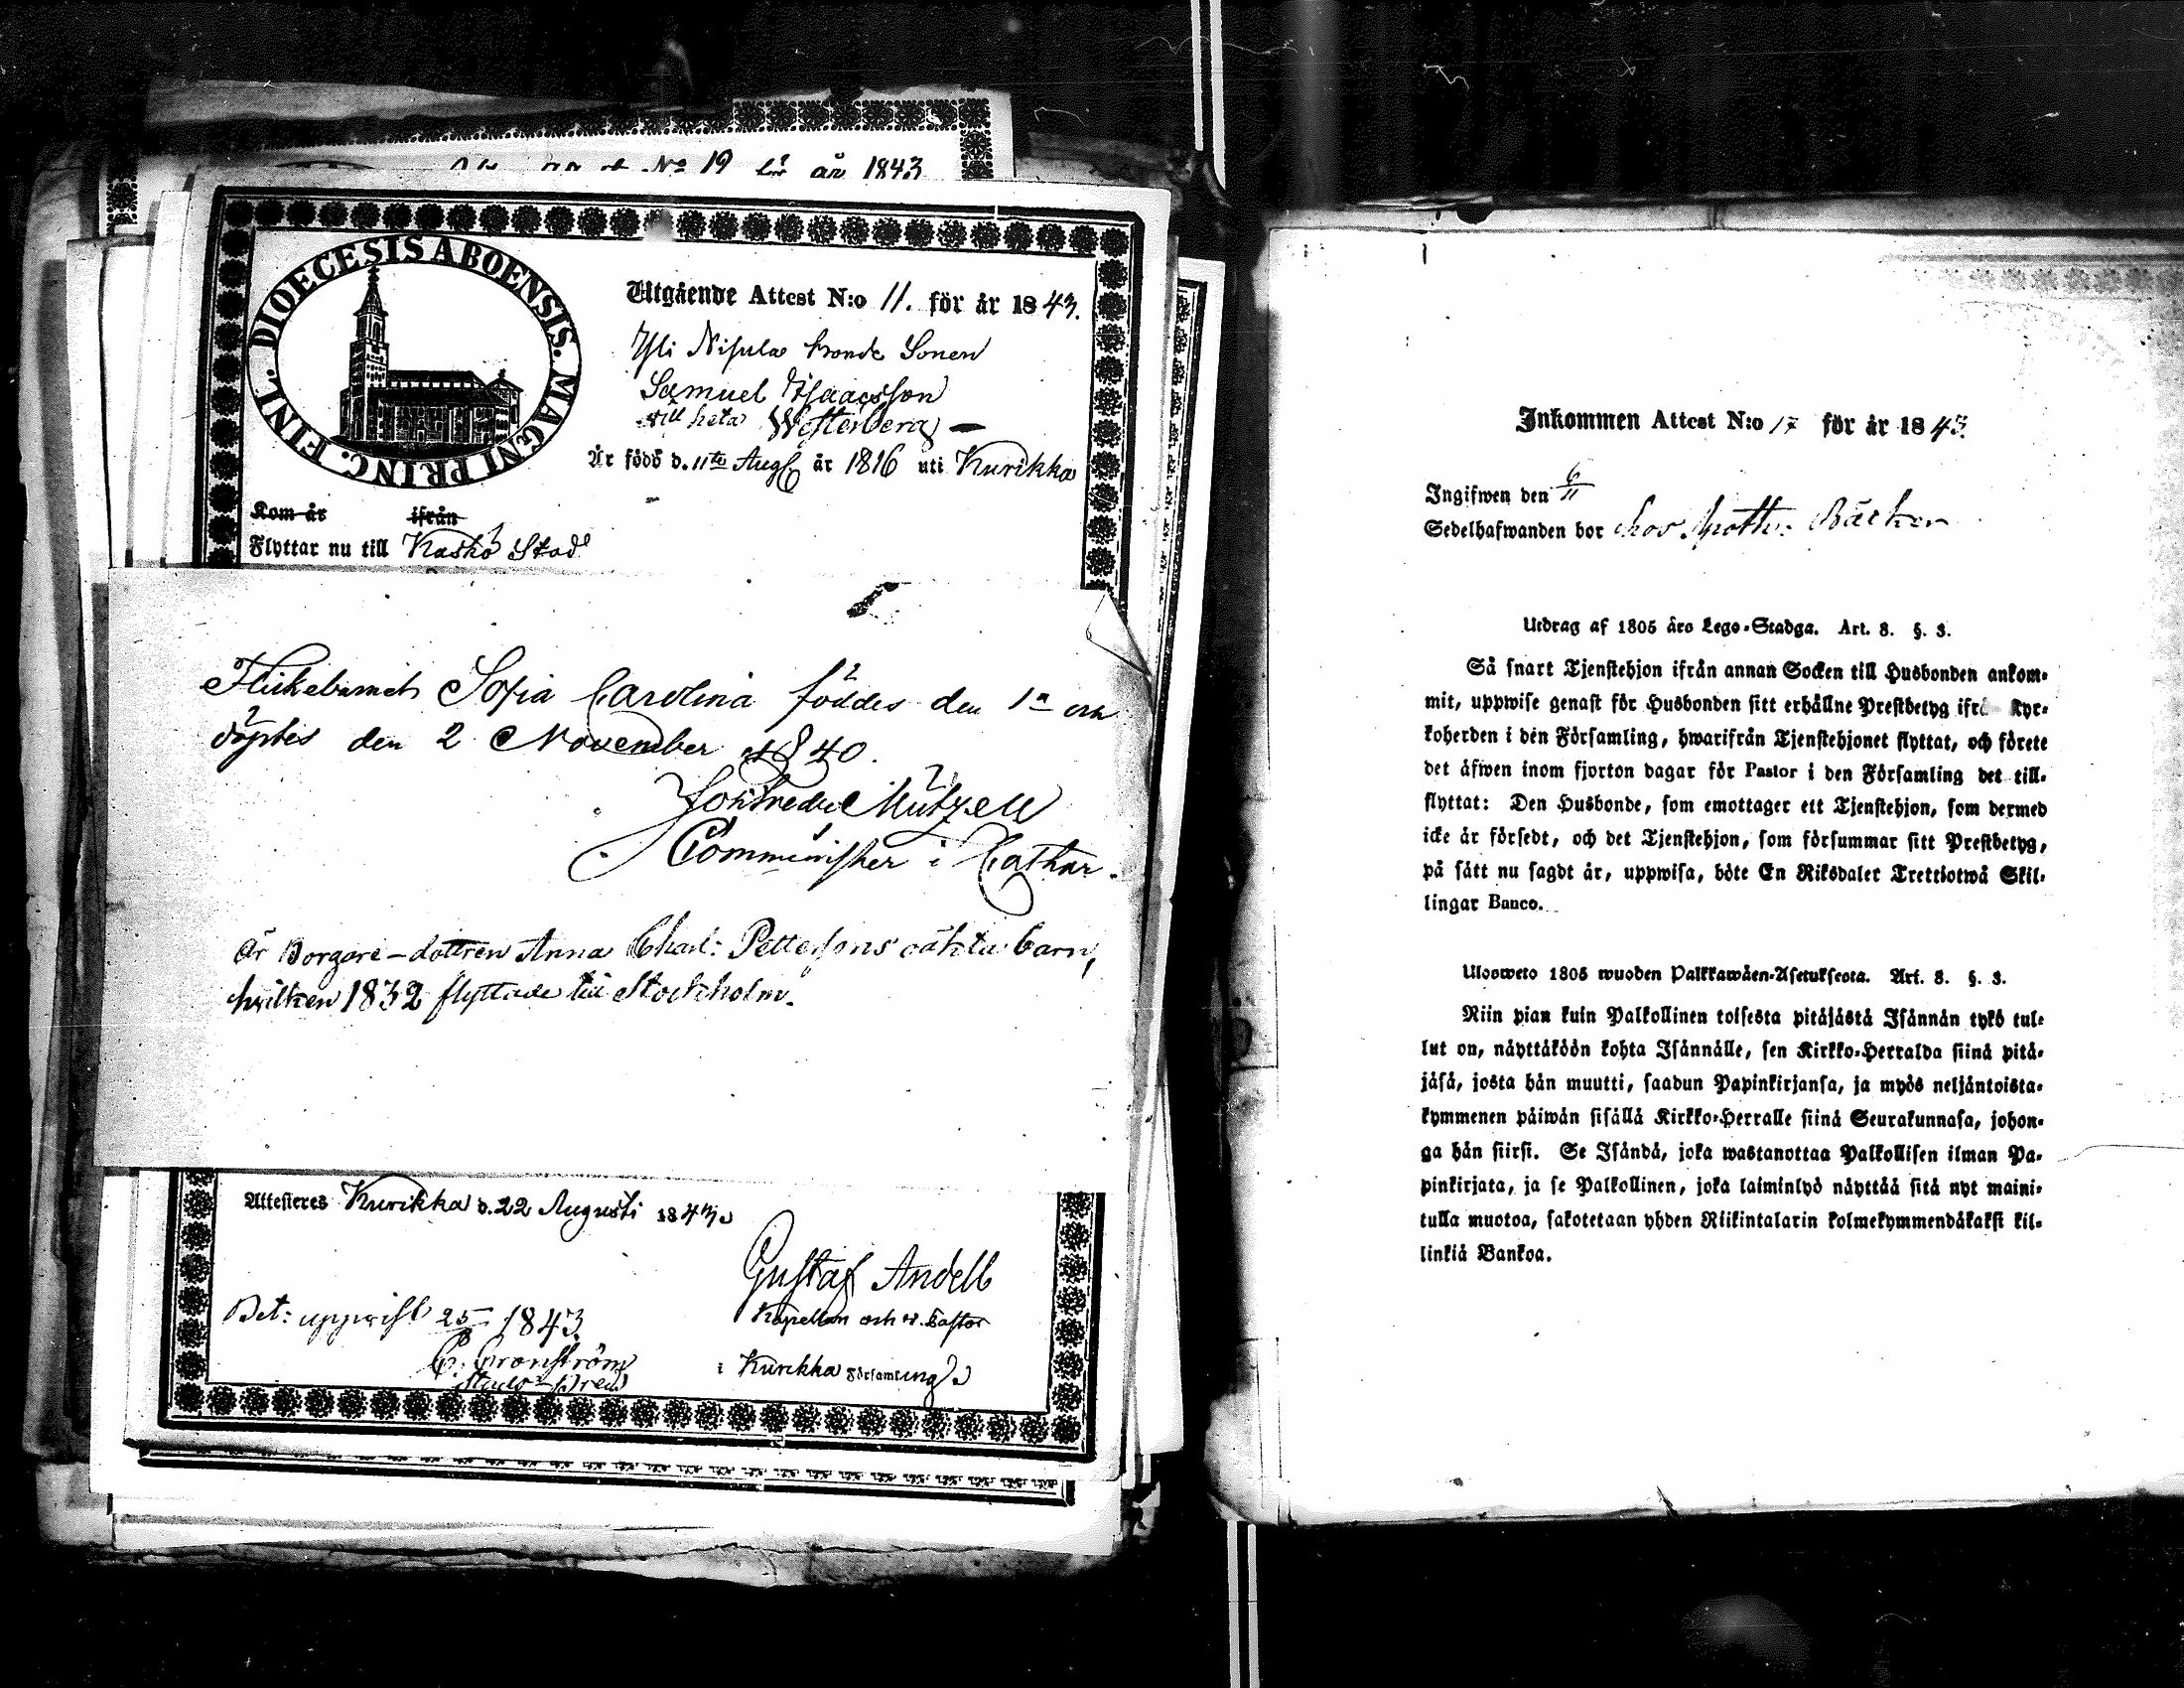 No 19 för år 1843
DIOECESIS ABOENSIS. MAGNI PRINC. FINL.
Utgående Attest N:o 11. för år 1843.
Yli Nisula bonde Sonen
Samuel Isaacsson
vill heta Westerberg —
Är född d. 11te Aug år 1816 uti Kurikka
Kom år ifrån
Flyttar nu till Kaskö Stad
Flickebarnet Sofia Carolina föddes den 1a och
döptes den 2 November 1840.
Mützell
Comminister i Cathar.
Är Borgare-dottren Anna Charl: Pettersons oäkta barn,
hvilken 1832 flyttade till Stockholm.
Attesteras Kurikka d. 22 Augusti 1843
Gustaf Andell
Kapellan och v. Pastor
i Kurikka Församling
Bet: uppvist 25 1843
C. Grönström
Inkommen Attest N:o 17 för år 1843.
Ingifwen den 6/11
Sedelhafwanden bor hos Bäcker
Utdrag af 1805 års Lego-Stadga. Art. 8. §. 3.
Så snart Tjenstehjon ifrån annan Socken till Husbonden ankom-
mit, uppwise genast för Husbonden sitt erhållne Prestbetyg ifrå Kyr-
koherden i den Församling, hwarifrån Tjenstehjonet flyttat, och förete
det äfwen inom fjorton dagar för Pastor i den Församling det till-
flyttat: Den Husbonde, som emottager ett Tjenstehjon, som dermed
icke är försedt, och det Tjenstehjon, som försummar sitt Prestbetyg,
på sätt nu sagdt är, uppwisa, böte En Riksdaler Trettiotwå Skil-
lingar Banco.
Ulosweto 1805 wuoden Palkkawäen-Asetuksesta. Art. 8. §. 3.
Niin pian kuin Palkollinen toisesta pitäjästä Isännän tykö tul-
lut on, näyttäköön kohta Isännälle, sen Kirkko-Herralda siinä pitä-
jäsä, josta hän muutti, saadun Papinkirjansa, ja myös neljäntoista-
kymmenen päiwän sisällä Kirkko-Herralle siinä Seurakunnasa, johon-
ga hän siirsi. Se Isändä, joka wastanottaa Palkollisen ilman Pa-
pinkirjata, ja se Palkollinen, joka laiminlyö näyttää sitä nyt maini-
tulla muotoa, sakotetaan yhden Riikintalarin kolmekymmendäkaksi kil-
linkiä Bankoa.